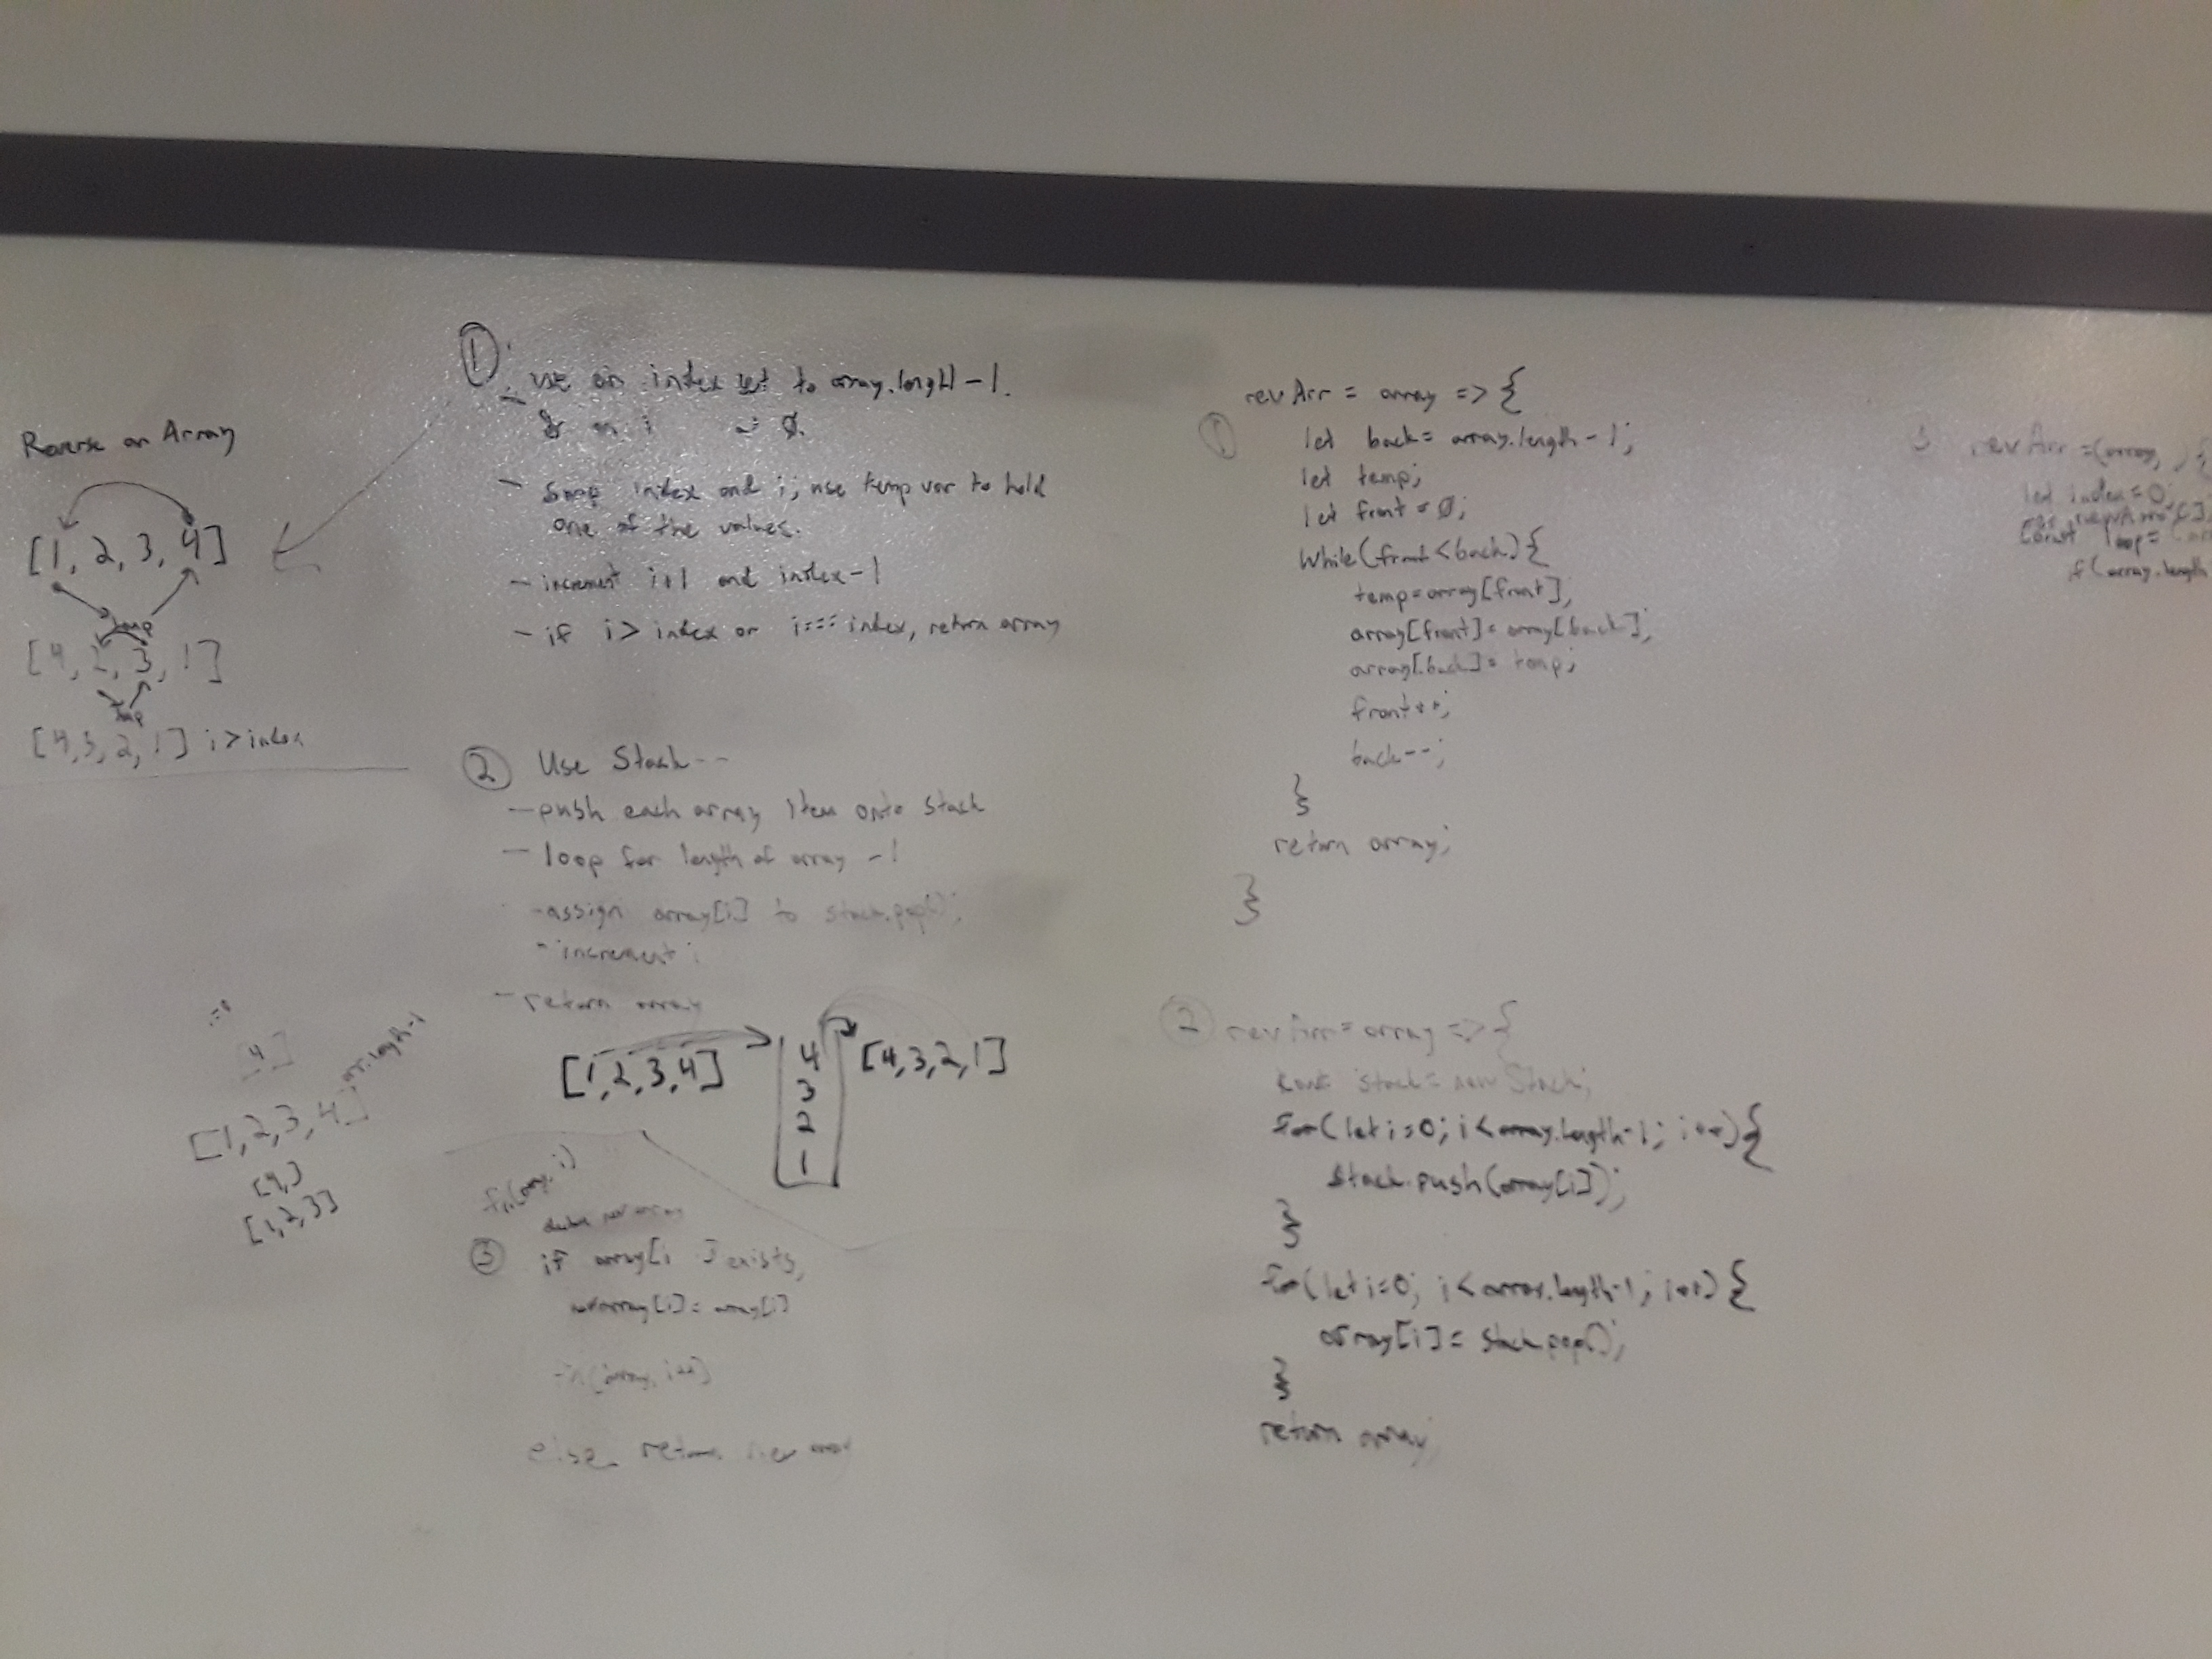 Reverse an Array
[1, 2, 3, 4]
temp
[4, 2, 3, 1]
temp
[4,3,2,1] i > index
①
- use an index set to array.length -1.
& an i = 0.
- swap index and i; use temp var to hold
one of the values.
- increment i+1 and index-1
- if i > index or i === index, return array
② Use Stack--
- push each array item onto stack
- loop for length of array -1
- assign array[i] to stack.pop();
- increment i
- return array
[1,2,3,4]
4
3
2
1
[4,3,2,1]
i=0
[4]
arr.length-1
[1,2,3,4]
[4,]
[1,2,3]
fn(array, i)
③ if array[i ] exists,
newarray[i] = array[i]
fn(array, i++)
else return new array
① revArr = array => {
let back = array.length - 1;
let temp;
let front = 0;
while(front < back) {
temp = array[front];
array[front] = array[back];
array[back] = temp;
front++;
back--;
}
return array;
}
② revArr = array => {
const stack = new Stack;
for(let i=0; i < array.length-1; i++) {
stack.push(array[i]);
}
for(let i=0; i < array.length-1; i++) {
array[i] = stack.pop();
}
return array;
3 revArr = (array, ) {
let index = 0;
const loop = (arr
if(array.length